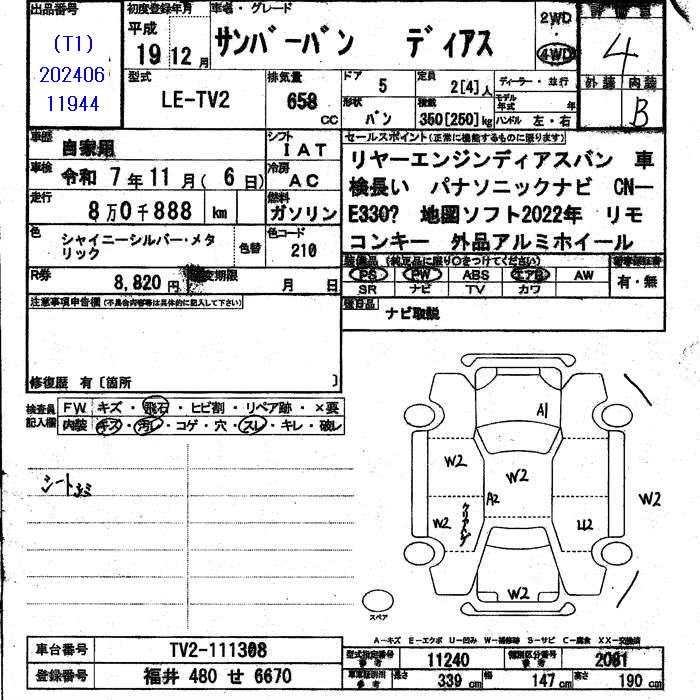 出品番号
(T1)
202406
11944
初度登録年月
平成
19 12月
車名・グレード
サンバーバン ディアス
2WD
4WD
4
外装 内装
B
型式
LE-TV2
排気量
658 CC
ドア
5
形状
バン
定員
2[4]人
積載
350[250]kg
ディーラー・並行
モデル年式 年
ハンドル 左・右
車歴
自家用
車検
令和 7年 11月( 6日)
走行
8万0千888 km
色
シャイニーシルバー・メタリック
色替
シフト
IAT
冷房
AC
燃料
ガソリン
色コード
210
R券
8,820円
変更期限
月 日
セールスポイント(正常に機能するものに限ります)
リヤーエンジンディアスバン 車
検長い パナソニックナビ CN-
E330? 地図ソフト2022年 リモ
コンキー 外品アルミホイール
装備品(純正品に限り○をつけてください)
PS PW ABS エアB AW
SR ナビ TV カワ
有・無
後日品
ナビ取説
注意事項申告欄(不具合内容等は具体的に記入して下さい)
修復歴 有〔箇所 〕
検査員記入欄
FW キズ・飛石・ヒビ割・リペア跡・×要
内装 キズ・汚レ・コゲ・穴・スレ・キレ・破レ
A1
W2
W2
A2
W2
クリアハゲ
U2
W2
W2
スペア
A-キズ E-エクボ U-凹み W-補修跡 S-サビ C-腐食 XX-交換済
車台番号
TV2-111308
登録番号
福井 480 せ 6670
型式指定番号
参考
11240
類別区分番号
参考
2061
長さ
339 cm
幅
147 cm
高さ
190 cm